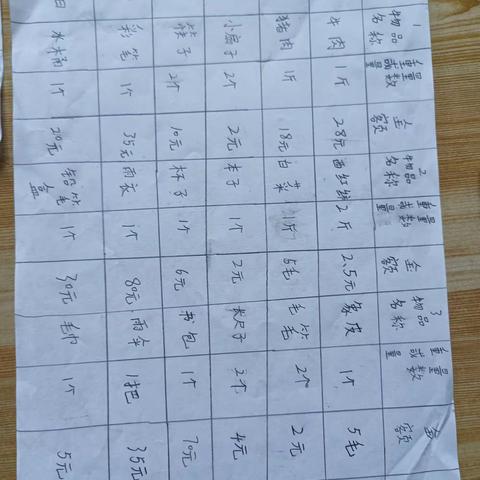 1物品名称 重量或数量 金额 2物品名称 重量或数量 金额 3物品名称 重量或数量 金额
牛肉 1斤 28元 西红柿 2斤 2.5元 橡皮 1个 5毛
猪肉 1斤 18元 白菜 1斤 5毛 毛笔 2个 2元
小扇子 2个 2元 本子 1个 2元 长尺子 2个 4元
筷子 2个 10元 杯子 1个 6元 书包 1个 70元
彩笔 1个 35元 雨衣 1个 80元 雨伞 1把 35元
水桶 1个 20元 铅笔盒 1个 30元 毛巾 1个 5元